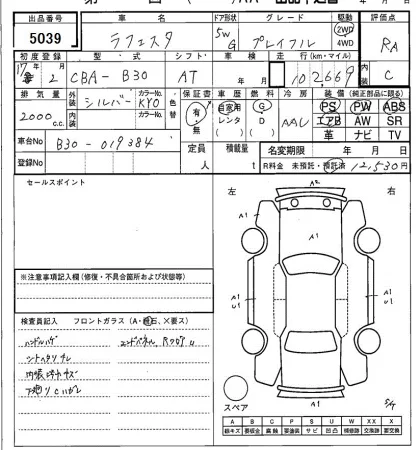 出品番号 車名 ドア形状 グレード 駆動 評価点
5039 ラフェスタ 5W G プレイフル 2WD 4WD RA
初度登録 型式 シフト 車検 走行(km・マイル) 内装
17年 2 CBA-B30 AT 年 月 102,669 C
排気量 外装 カラーNo. 色替 保証書 車歴 燃料 冷房 装備(純正部品に限る)
2000 c.c. シルバー KYO 有・無 自家用 レンタ G D AAC PS PW ABS
内装 カラーNo. エアB AW SR
革 ナビ TV
車台No B30-019384 定員 人 積載量 t 名変期限 年 月 日
登録No R料金 未預託・預託済 12,530円
セールスポイント 左 右
A2
A1
A1
※注意事項記入欄(修復・不具合箇所および状態等)
A1 U1
A1 U1
検査員記入 フロントガラス(A・飛石、X要ス)
ハンドルハゲ エンドパネル、Rフロアu
シートヘタリ
内張
下廻りCハガレ
スペア
A1
A B C P S U W XX X
線キズ 要板金 腐蝕 要塗装 サビ 凹凸 補修跡 交換跡 要交換